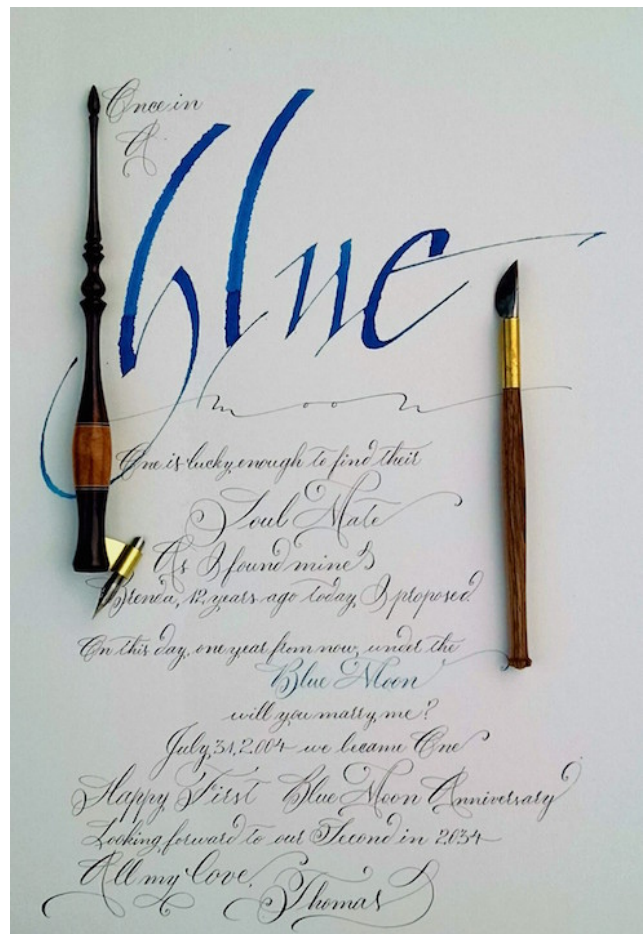 Once in
A
blue
moon
One is lucky enough to find their
Soul Mate
As I found mine
Brenda, 12, years ago today, I proposed
On this day, one year from now, under the
Blue Moon
will you marry me?
July, 31, 2004 we became One
Happy First Blue Moon Anniversary
Looking forward to our Second in 2034
All my love,
Thomas